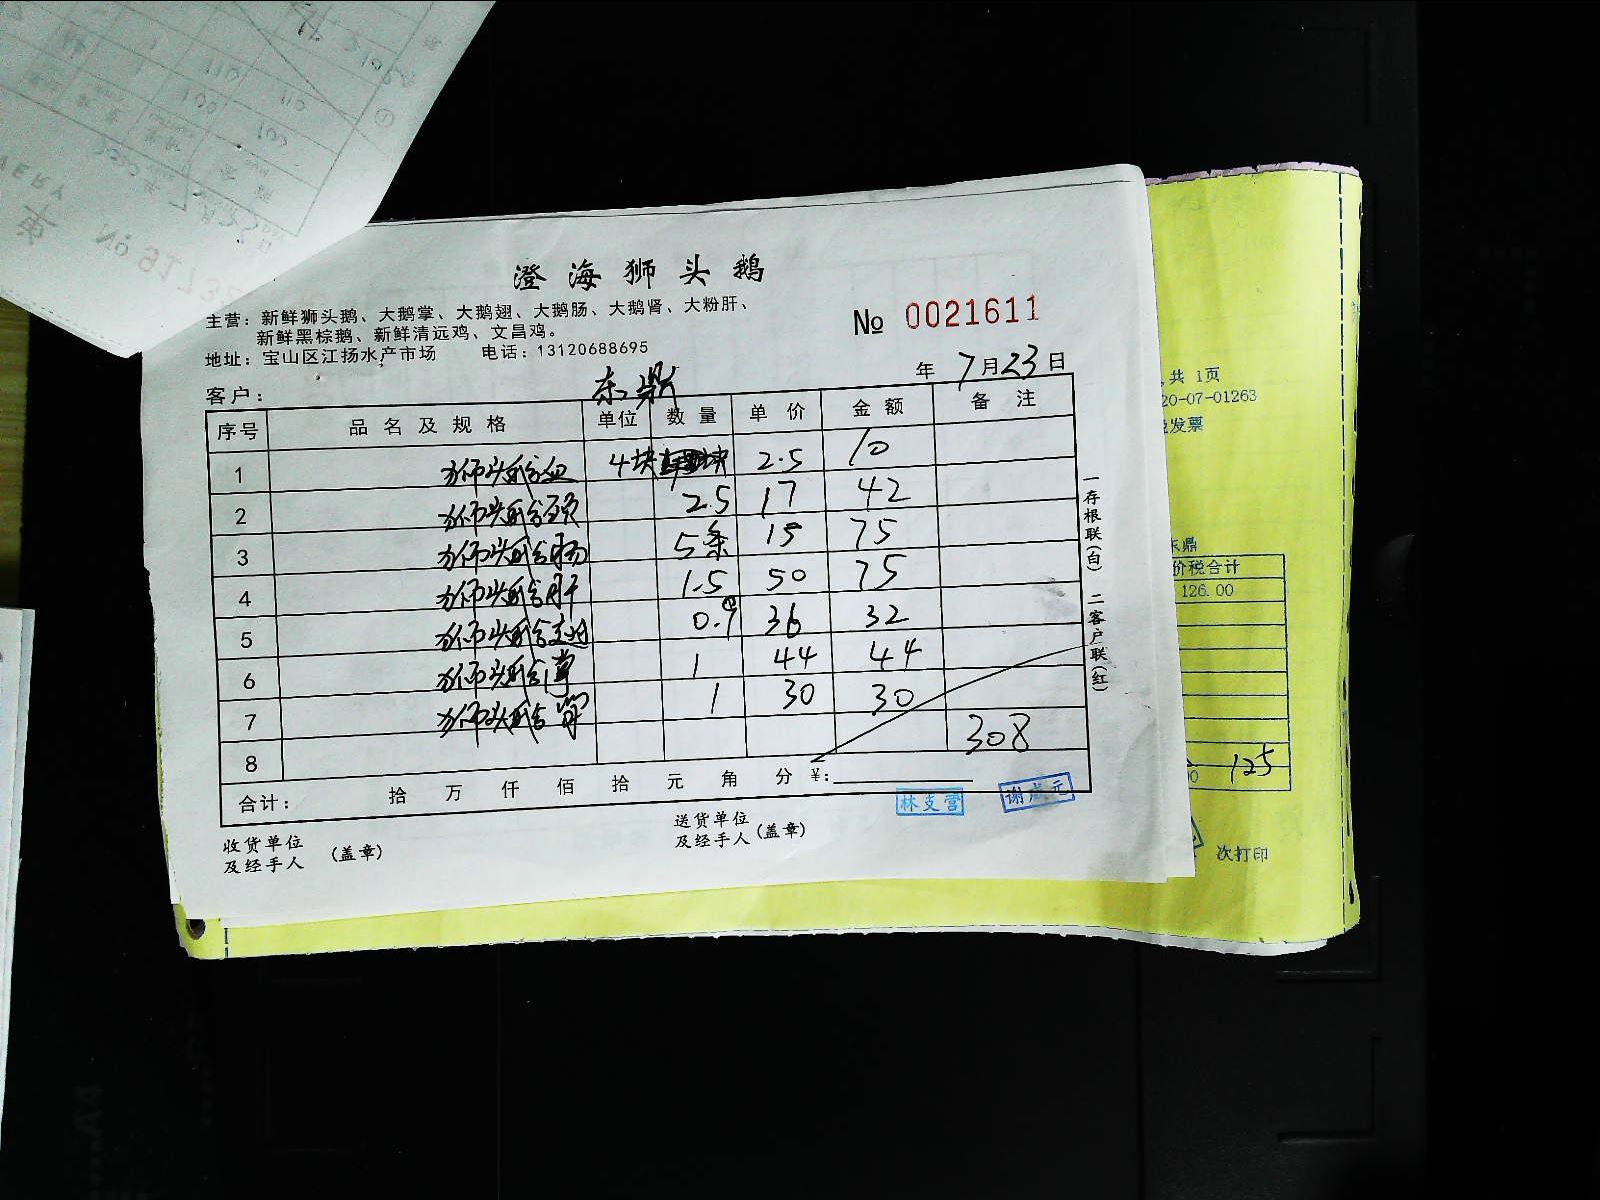 澄海狮头鹅
主营：新鲜狮头鹅、大鹅掌、大鹅翅、大鹅肠、大鹅肾、大粉肝、
新鲜黑棕鹅、新鲜清远鸡、文昌鸡。
№ 0021611
地址：宝山区江扬水产市场 电话：13120688695
客户： 东鼎 年 7月23日
序号 品名及规格 单位 数量 单价 金额 备注
1 狮头鹅血 4块 2.5 10
2 狮头鹅头 2.5 17 42
3 狮头鹅肠 5条 15 75
4 狮头鹅肝 1.5 50 75
5 狮头鹅翅 0.9 36 32
6 狮头鹅掌 1 44 44
7 狮头鹅肾 1 30 30
8 308
合计： 拾 万 仟 佰 拾 元 角 分 ¥:
林支营 谢成元
收货单位
及经手人 (盖章)
送货单位
及经手人 (盖章)
一存根联(白) 二客户联(红)
共 1页
20-07-01263
发票
东鼎
价税合计
126.00
125
次打印